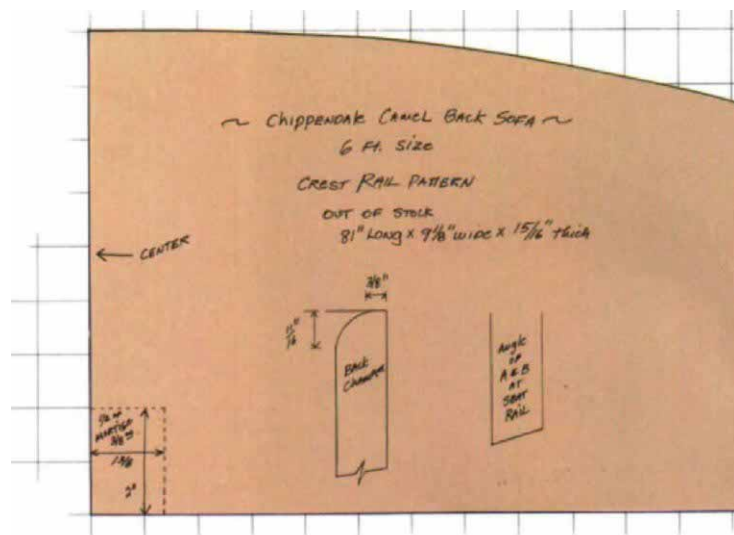 ~ Chippendale Camel Back Sofa ~
6 Ft. Size
Crest Rail Pattern
out of stock
81" Long x 9 1/8" wide x 15/16" thick
← Center
3/8"
11/16"
Back
Chamfer
Angle
of
A & B
at
Seat
Rail
Mortise
3/8"
2"